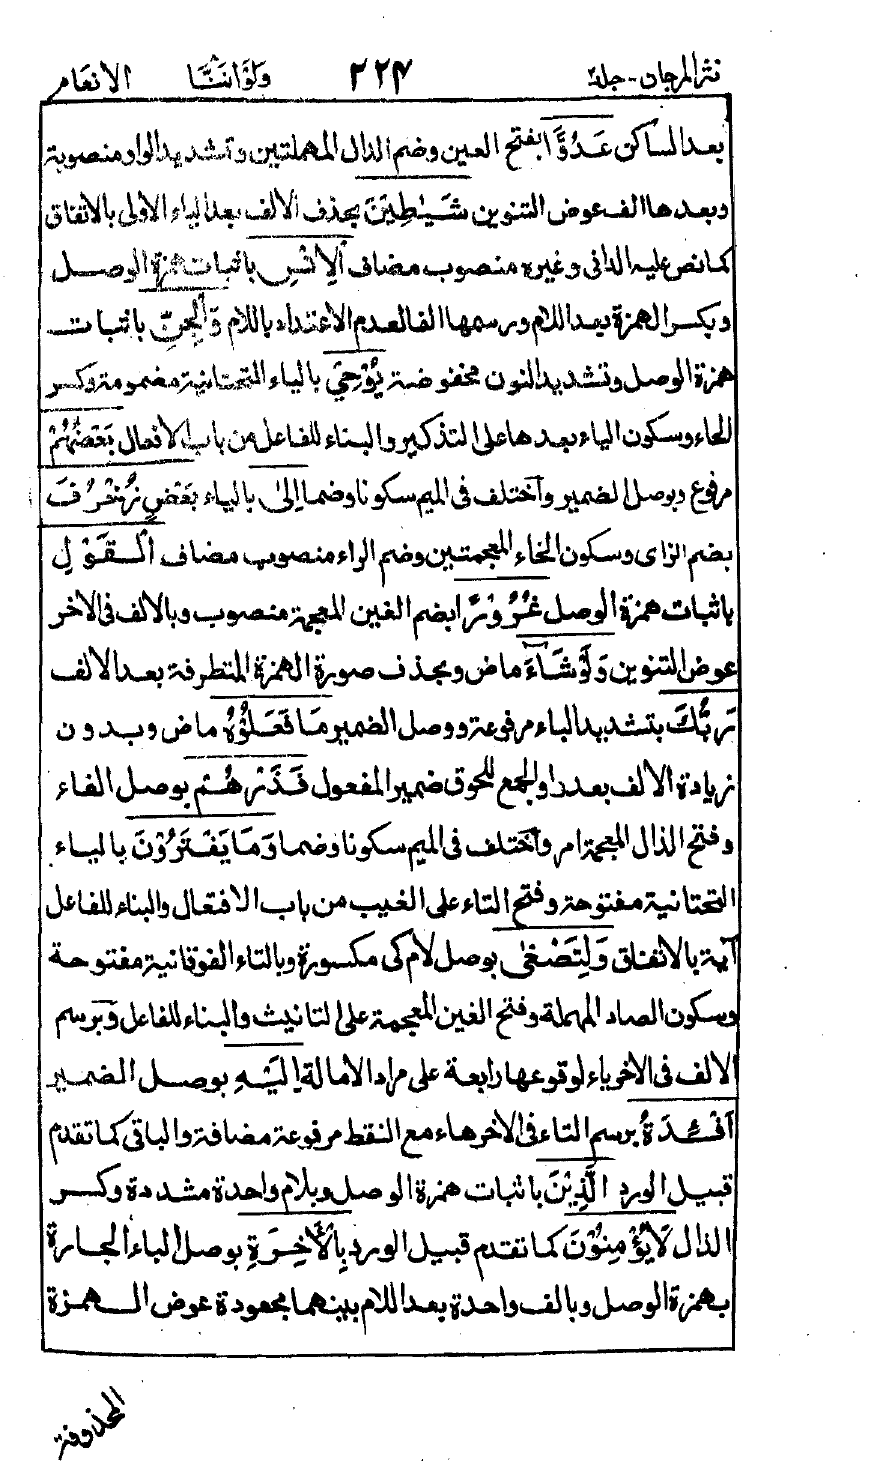 نثر المرجان - جلد٢ ٢٢٤ ولو اننا الانعام
بعد الساكن عَدُوًّا بفتح العين وضم الدال المهملتين وتشديد الواو منصوبة
وبعدها الف عوض التنوين شَيٰطِيْنَ بحذف الالف بعد الياء الاولى بالاتفاق
كما نص عليه الدانى وغيره منصوب مضاف اَلْاِنْسِ باثبات همزة الوصل
وبكسر الهمزة بعد اللام ورسمها الفا لعدم الاعتداد باللام وَالْجِنِّ باثبات
همزة الوصل وتشديد النون مخفوضة يُوْحِيْ بالياء التحتانية مضمومة وكسر
الحاء وسكون الياء بعدها على التذكير والبناء للفاعل من باب الافعال بَعْضُهُمْ
مرفوع وبوصل الضمير واختلف فى الميم سكونا وضما اِلٰى بالياء بَعْضٍ زُخْرُفَ
بضم الزاى وسكون الخاء المعجمتين وضم الراء منصوب مضاف اَلْقَوْلِ
باثبات همزة الوصل غُرُوْرًا بضم الغين المعجمة منصوب وبالالف فى الاخر
عوض التنوين وَلَوْ شَآءَ ماض وبحذف صورة الهمزة المتطرفة بعد الالف
رَبُّكَ بتشديد الباء مرفوعة ووصل الضمير مَا فَعَلُوْهُ ماض وبدون
زيادة الالف بعد واو الجمع للحوق ضمير المفعول فَذَرْهُمْ بوصل الفاء
وفتح الذال المعجمة امر واختلف فى الميم سكونا وضما وَمَا يَفْتَرُوْنَ بالياء
التحتانية مفتوحة وفتح التاء على الغيب من باب الافتعال والبناء للفاعل
آية بالاتفاق وَلِتَصْغٰى بوصل لام كى مكسورة وبالتاء الفوقانية مفتوحة
وسكون الصاد المهملة وفتح الغين المعجمة على التانيث والبناء للفاعل وبرسم
الالف فى الاخر ياء لوقوعها رابعة على مراد الامالة اِلَيْهِ بوصل الضمير
اَفْئِدَةُ برسم التاء فى الاخر هاء مع النقط مرفوعة مضافة والباقى كما تقدم
قبيل الورد الَّذِيْنَ باثبات همزة الوصل وبلام واحدة مشددة وكسر
الذال لَا يُؤْمِنُوْنَ كما تقدم قبيل الورد بِالْاٰخِرَةِ بوصل الباء الجارة
بهمزة الوصل وبالف واحدة بعد اللام بينهما مجعودة عوض الهمزة
المحذوفة